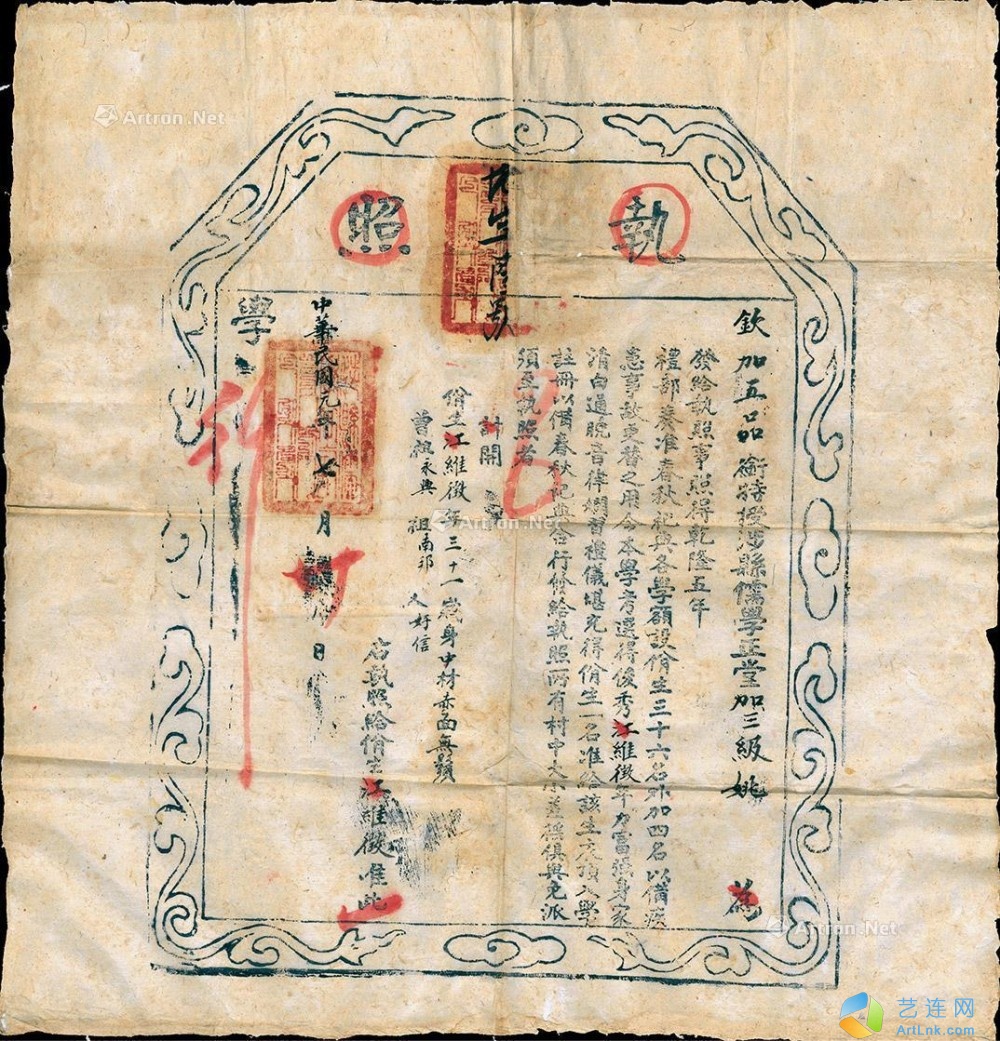 執照
欽加五品銜特授涉縣儒學正堂加三級姚 為
發給執照事照得乾隆五年
禮部奏准春秋祀典各學額設佾生三十六名外加四名以備疾
恙事故更替之用今本學考選得俊秀江維徵年力富強身家
清白通脫音律嫻習禮儀堪充得佾生一名准給該生頂入學
註冊以備春秋祀典合行發給執照所有村中大小差徭俱與免派
須至執照者
計開
佾生江維徵年三十一歲身中材赤面無鬚
曾祖永興 祖南邦 父好信
右執照給佾生江維徵准此
中華民國元年七月 日
學
Artron.Net
Artron.Net
Artron.Net
艺连网
ArtLnk.com